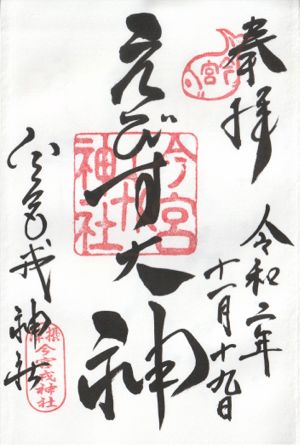 奉拝
令和二年
十一月十九日
えびす大神
今宮戎神社
今宮
今宮
戎
神社
摂津
今宮戎神社